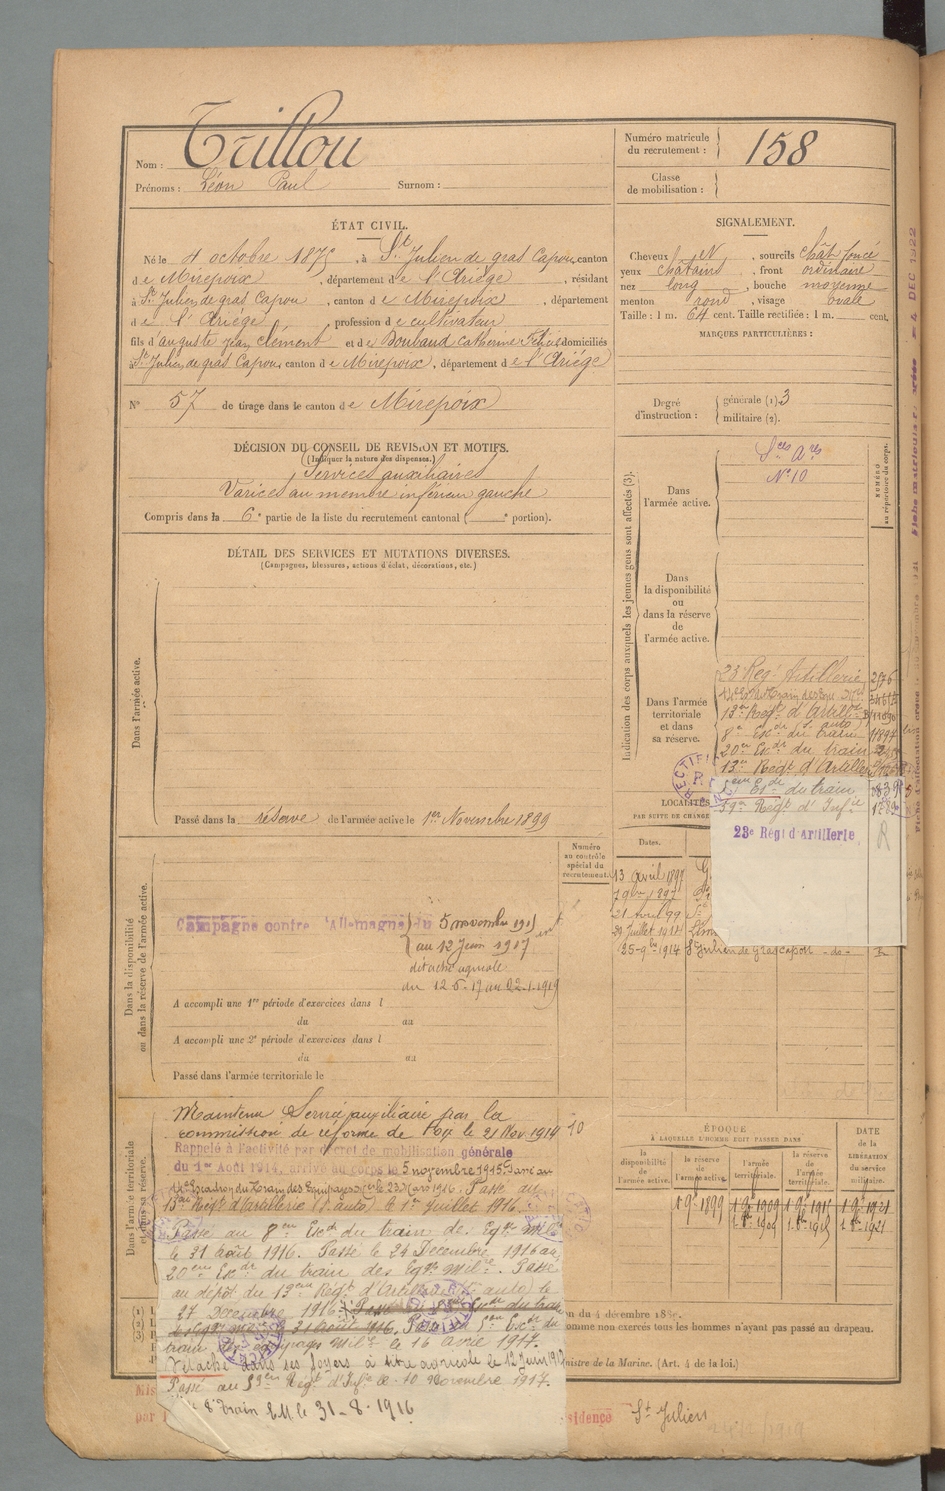 Nom : Trillou
Prénoms : Léon Paul Surnom :
Numéro matricule du recrutement : 158
Classe de mobilisation :
ÉTAT CIVIL.
Né le 4 octobre 187 , à St Julien de gras Capou, canton
de Mirepoix , département de l'Ariége , résidant
à St Julien de gras Capou , canton de Mirepoix , département
de l'Ariége profession de cultivateur
fils d'auguste jean clément et de Boubaud Catherine domiciliés
St Julien de gras Capou, canton de Mirepoix , département de l'Ariége
N° 57 de tirage dans le canton de Mirepoix
SIGNALEMENT.
Cheveux N , sourcils chât foncé
yeux châtains , front ordinaire
nez long , bouche moyenne
menton rond , visage ovale
Taille : 1 m. 64 cent. Taille rectifiée : 1 m. cent.
MARQUES PARTICULIÈRES :
Degré d'instruction : générale (1). 3
militaire (2).
DÉCISION DU CONSEIL DE REVISION ET MOTIFS.
(Indiquer la nature des dispenses.)
Services auxiliaires
Varices au membre inférieur gauche
Compris dans la 6e partie de la liste du recrutement cantonal ( e portion).
DÉTAIL DES SERVICES ET MUTATIONS DIVERSES.
(Campagnes, blessures, actions d'éclat, décorations, etc.)
Dans l'armée active.
Passé dans la réserve de l'armée active le 1er Novembre 1899
Indication des corps auxquels les jeunes gens sont affectés (3).
NUMÉRO au répertoire du corps.
Dans l'armée active.
Sces Ares
N° 10
Dans la disponibilité ou dans la réserve de l'armée active.
Dans l'armée territoriale et dans sa réserve.
23 Reg Artillerie
13e Regt d'Artillie
(S. auto)
8e Esc. du train
20e Esc du train
13e Regt d'Artillerie
Esc du train
59e Regt d'Infie
23e Régt d'Artillerie
R
LOCALITÉS
PAR SUITE DE CHANGE
Dates.
13 avril 1897
7 9bre 1897
21 Avril 99
29 Juillet 1914
25-9bre 1914 St Julien de Grascapou - do -
Dans la disponibilité ou dans la réserve de l'armée active.
Numéro au contrôle spécial du recrutement.
Campagne contre l'Allemagne du 5 novembre 1915
au 12 Juin 1917
détaché agricole
du 12-6-17 au 22-1-1919
A accompli une 1re période d'exercices dans l
du au
A accompli une 2e période d'exercices dans l
du au
Passé dans l'armée territoriale le
Dans l'armée territoriale et dans sa réserve.
Maintenu Service auxiliaire par la
commission de réforme de Foix le 21 Nov 1914
10
Rappelé à l'activité par décret de mobilisation générale
du 1er Août 1914, arrivé au corps le 5 novembre 1915. Passé au
Escadron du Train des Equipages Mil le 23 Mars 1916. Passé au
13e Régt d'artillerie (S. auto) le 1er Juillet 1916.
Passé au 8eme Escd du train des Eqges Milre
le 31 août 1916. Passé le 24 Decembre 1916 au
20eme Esc du train des Eqges Milre. Passé
au dépôt du 13eme Régt d'Artillerie (S. auto) le
27 Decembre 1916.
le 31 Août 1916. Passé au Esc du
train des équipages Milre le 16 avril 1917.
Détaché dans ses foyers à titre agricole le 12 Juin 1917
Passé au 59e Régt d'Infie le 10 Novembre 1917.
8e train E.M. le 31-8-1916
ÉPOQUE
À LAQUELLE L'HOMME DOIT PASSER DANS
la disponibilité de l'armée active.
la réserve de l'armée active.
l'armée territoriale.
la réserve de l'armée territoriale.
DATE de la LIBÉRATION du service militaire.
1 9e 1899 1 9e 1909 1 9e 1915 1 9e 1921
on du 4 décembre 188
omme non exercés tous les hommes n'ayant pas passé au drapeau.
inistre de la Marine. (Art. 4 de la loi.)
sidence St Julien